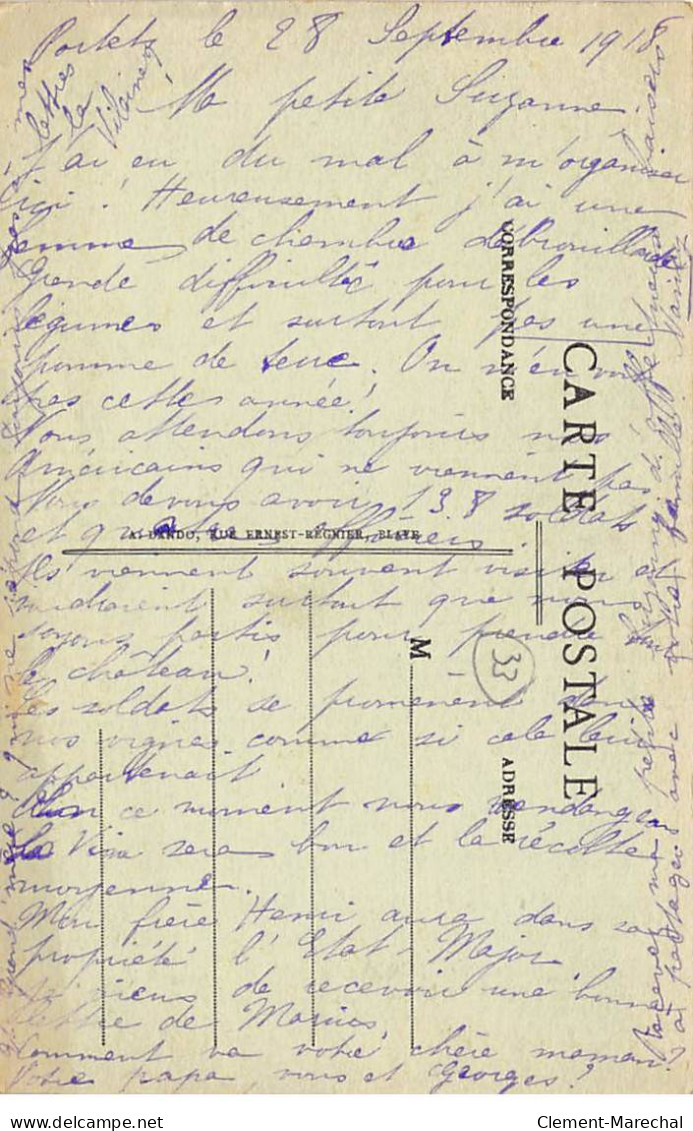 Portets le 28 Septembre 1918
Ma petite Suzanne.
J'ai eu du mal à m'organiser
ici ! Heureusement j'ai une
femme de chambre débrouillarde
Grande difficulté pour les
légumes et surtout pas une
pomme de terre. On n'en
pas cette année !
Nous attendons toujours nos
Américains qui ne viennent pas
Nous devons avoir 138 soldats
et officiers.
Ils viennent souvent visiter et
voudraient surtout que nous
soyons partis pour prendre
le château !
Les soldats se promènent dans
nos vignes comme si cela leur
appartenait
En ce moment nous vendangeons
Le Vin sera bon et la récolte
moyenne.
Mon frère Henri aura dans sa
propriété l'Etat-Major
Je viens de recevoir une bonne
lettre de
Comment va votre chère maman ?
Votre papa, vous et Georges ?
Recevez ma petite Suzanne
à partager avec votre famille.
grand'mère qui ne répond
toujours pas à mes
lettres
la
Vilaine
CORRESPONDANCE
CARTE POSTALE
ADRESSE
M
33
A. DANDO, RUE ERNEST-REGNIER, BLAYE
Clement-Marechal